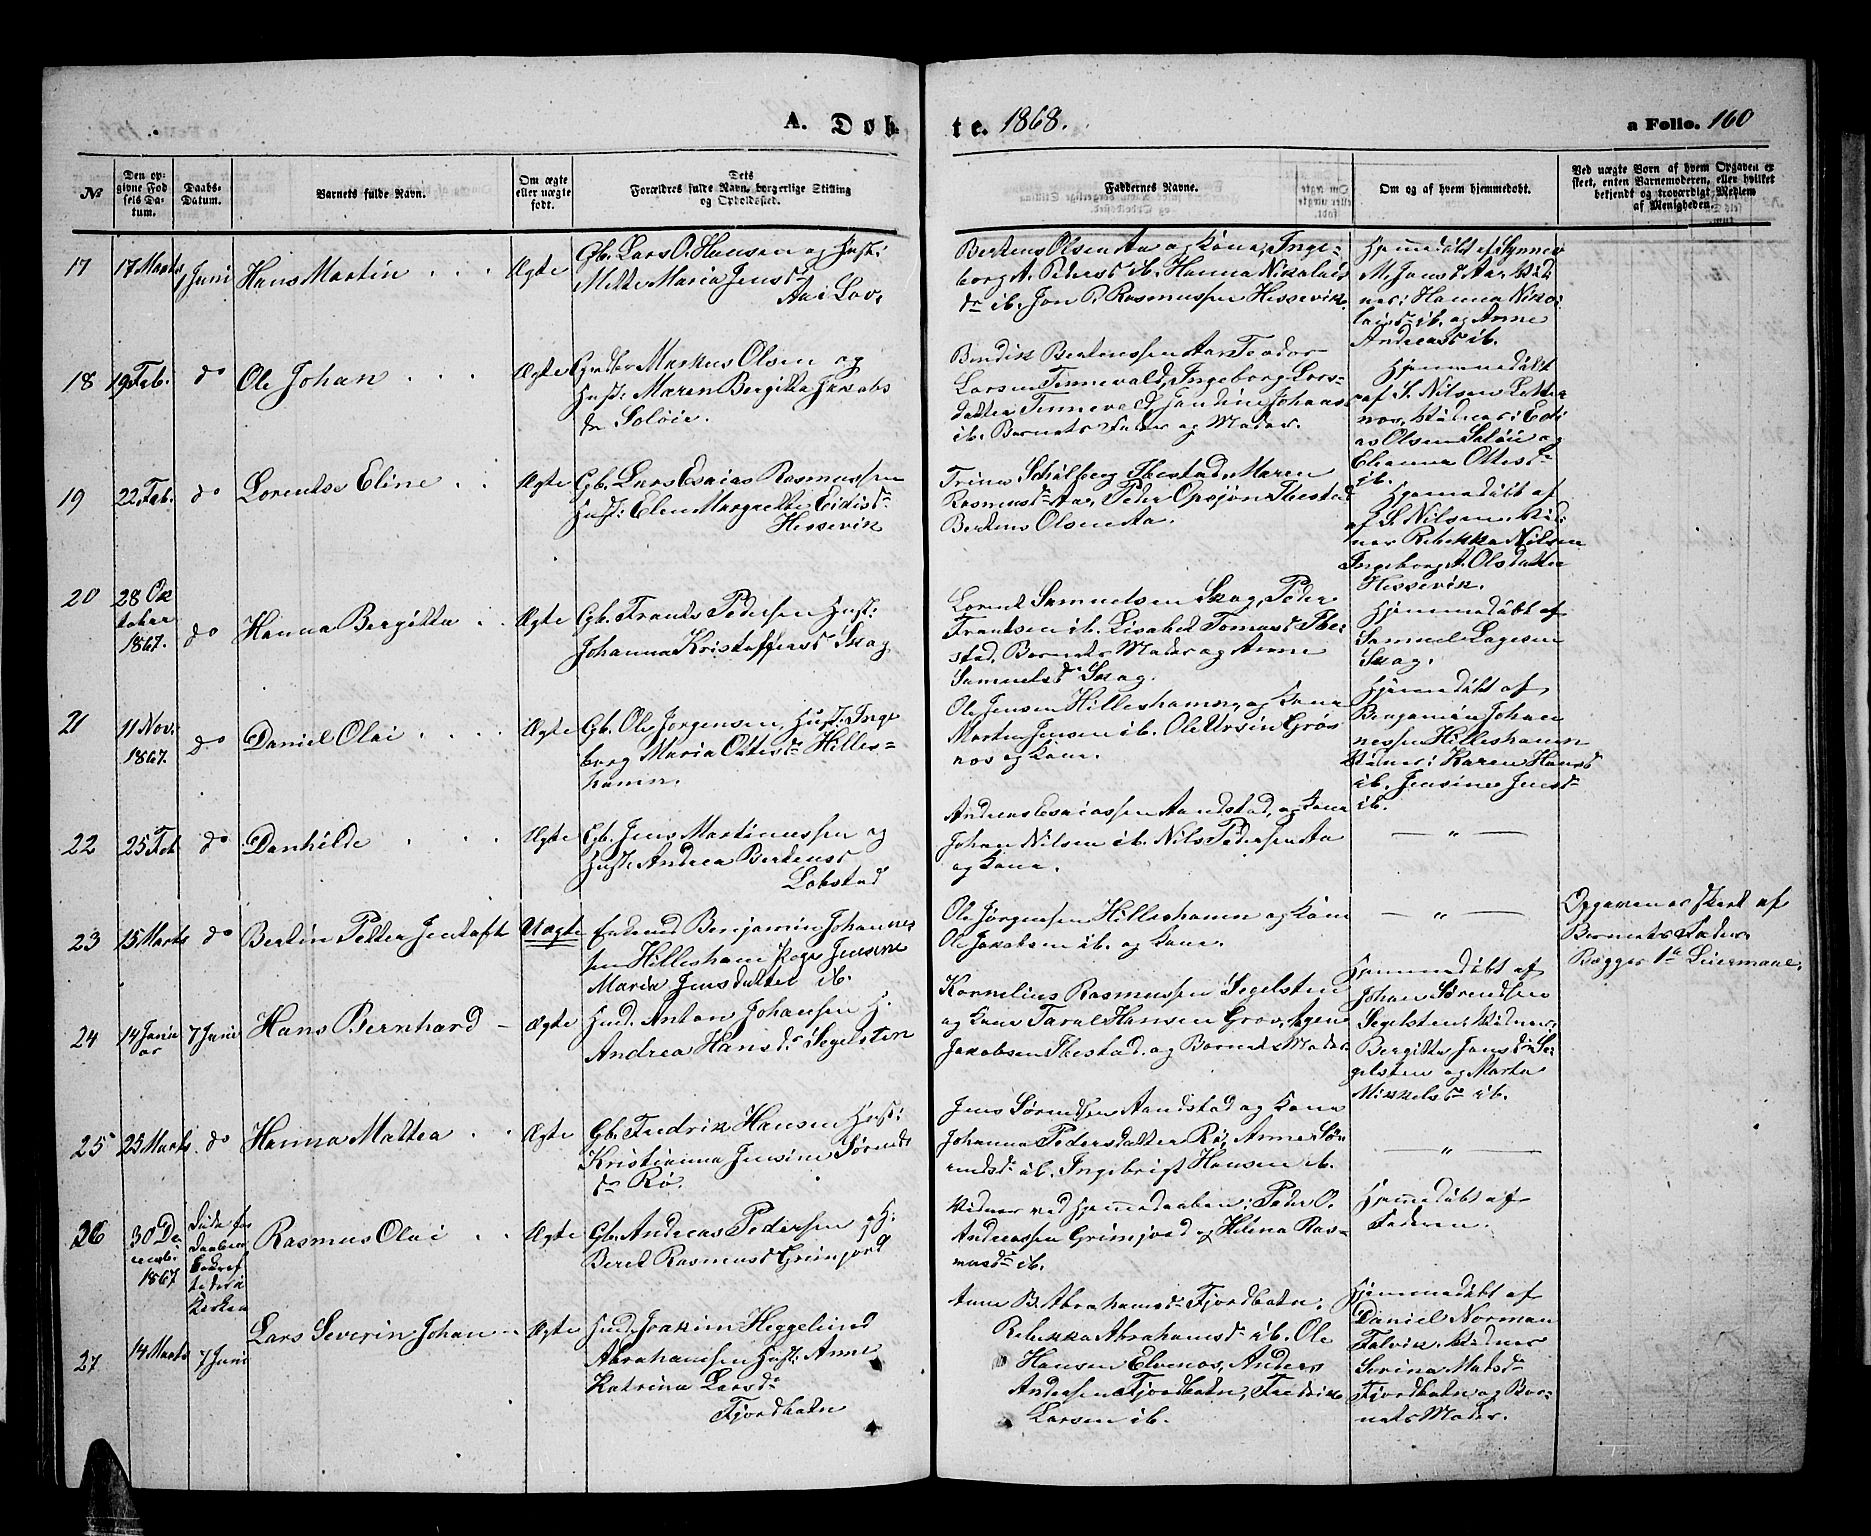 A. Døb
te. 1868.
a Folio. 160
No
Den op-
givne Fød
sels Da-
tum.
Daabs-
Datum.
Barnets fulde Navn.
Om ægte
eller uægte
født.
Dets
Forældres fulde Navn, borgerlige Stilling
og Opholdssted.
Faddernes Navne.
Om og af hvem hjemmedøbt.
Ved uægte Børn af hvem Opgaven er
skeet, enten Barnemoderen, eller hvilket
bekjendt og troværdigt Medlem
af Menigheden.
17
17 Marts
1 Juni
Hans Martin
Ægte
Gb. Lars O. Hansen og Hust:
Mette Maria Jensdr
Aa i Lav.
Bertens Olsen Aa og Kone, Inge-
borg A. Pedersd ib. Hanna Nikolais
dr ib. Jon P. Rasmussen Hessevik.
Hjemmedøbt af Synnev
M. Jansd Aar, Vid
ner: Hanna Niko-
laisdr ib. og Anne
Andreasd ib.
18
19 Feb.
do
Ole Johan
Ægte
Markus Olsen og
Hust: Maren Bergitta Jakobs
dr Soløie.
Bendik Bertenssen Aar, Teodor
Larsen Tennevold, Ingeborg Lars-
datter Tennevold, Johans
ib. Barnets Fader og Moder.
Hjemmedøbt
af S. Nilsen
Vidner:
Olsen Soløie og
Elianna Ottesd
ib.
19
22 Feb.
do
Lorentse Eline
Ægte
Gb. Lars Esaias Rasmussen
Hust: Elen Margrethe Eidisdr
Hessevik
Trine Schølberg Ibestad, Maren
Rasmusdr Aar, Peder Opsjøn Ibestad
Bertens Olsen Aa.
Hjemmedøbt af
af S. Nilsen, Vid
ner Rebekka Nilsen
Ingeborg A. Olsdatter
Hessevik.
20
28 Ok
tober
1867.
do
Hanna Bergitta
Ægte
Gb. Frants Pedersen Hust:
Johanna Kristoffersd Skog
Lornt Samuelsen Skog, Peder
Frantsen ib. Lisabet Tomasd Ibe-
stad, Barnets Moder og Anne
Samuelsd Skog.
Hjemmedøbt af
Samuel Lagesen
Skog.
21
11 Nov.
1867.
do
Daniel Olai
Ægte
Gb. Ole Jørgensen, Hust. Inge
borg Maria Ottesdr Hilles-
hamn.
Ole Jensen Hilleshamn, og Kone
Morten Jensen ib. Ole Ursin Grøs
nos og Kone.
Hjemmedøbt af
Benjamin Johan
nessen Hilleshamn
Vidner: Karen Hansd
ib. Jensine Jensd
ib.
22
25 Feb
do
Danhilde
Ægte
Gb. Jens Martinussen og
Hust. Andrea Bertensd
Løbstad
Andreas Esaiassen Aandstad, og Kone
Johan Nilsen ib. Nils Pedersen Aa
og Kone.
— " —
23
15 Marts
do
Bertin Petter Jentoft
Uægte
Enkemd Benjamin Johannes
sen Hilleshamn Pige Jensine
Maria Jensdatter ib.
Ole Jørgensen Hilleshamn og Kone
Ole Jakobsen ib. og Kone.
— " —
Opgaven er skeet af
Barnets Fader.
Begges 1ste Leiermaal.
24
14 Janu
ar
7 Juni
Hans Bernhard
Ægte
Husmd. Anton Johansen H.
Andrea Hansdr Segelsten
Kornelius Rasmussen Segelsten
og Kone Taral Hansen Grov, Agen
Jakobsen Ibestad, og Barnets Moder.
Hjemmedøbt af
Johan Sørensen
Segelsten, Vidner,
Bergitte Jansdr Se-
gelsten og Marta
Mikkelsdr ib.
25
25 Marts
do
Hanna Mattea
Ægte
Gb. Fredrik Hansen Hust:
Kristianna Jensine Sørends
dr Rø.
Jens Sørendsen Aandstad og Kone
Johanna Pedersdatter Rø, Anne Sør
endsdr ib. Ingebrigt Hansen ib.
— " —
26
30 De
cembr
1867
Døde før
Daaben
bekref
tedes i
Kirken
Rasmus Olai
Ægte
Gb. Andreas Pedersen og H:
Beret Rasmusd Grimjord
Vidner ved Hjemmedaaben: Peder O.
Andreassen Grimjord og Helena Ras-
musdr ib.
Hjemmedøbt af
Faderen.
27
14 Marts
7 Juni
Lars Severin Johan
Ægte
Husmd. Joakim Heggelund
Abrahamsen Hust: Anne
Katrina Larsdr
Fjordbotn
Anne B. Abrahamsdr Fjordbotn,
Rebekka Abrahamsdr ib. Ole
Hansen Elvenos, Anders
Andersen Fjordbotn, Fredrik
Larsen ib.
Hjemmedøbt af
Daniel Norman
Falvik Vidner
Serina Matsdr
Fjordbotn og Bar-
nets Moder.